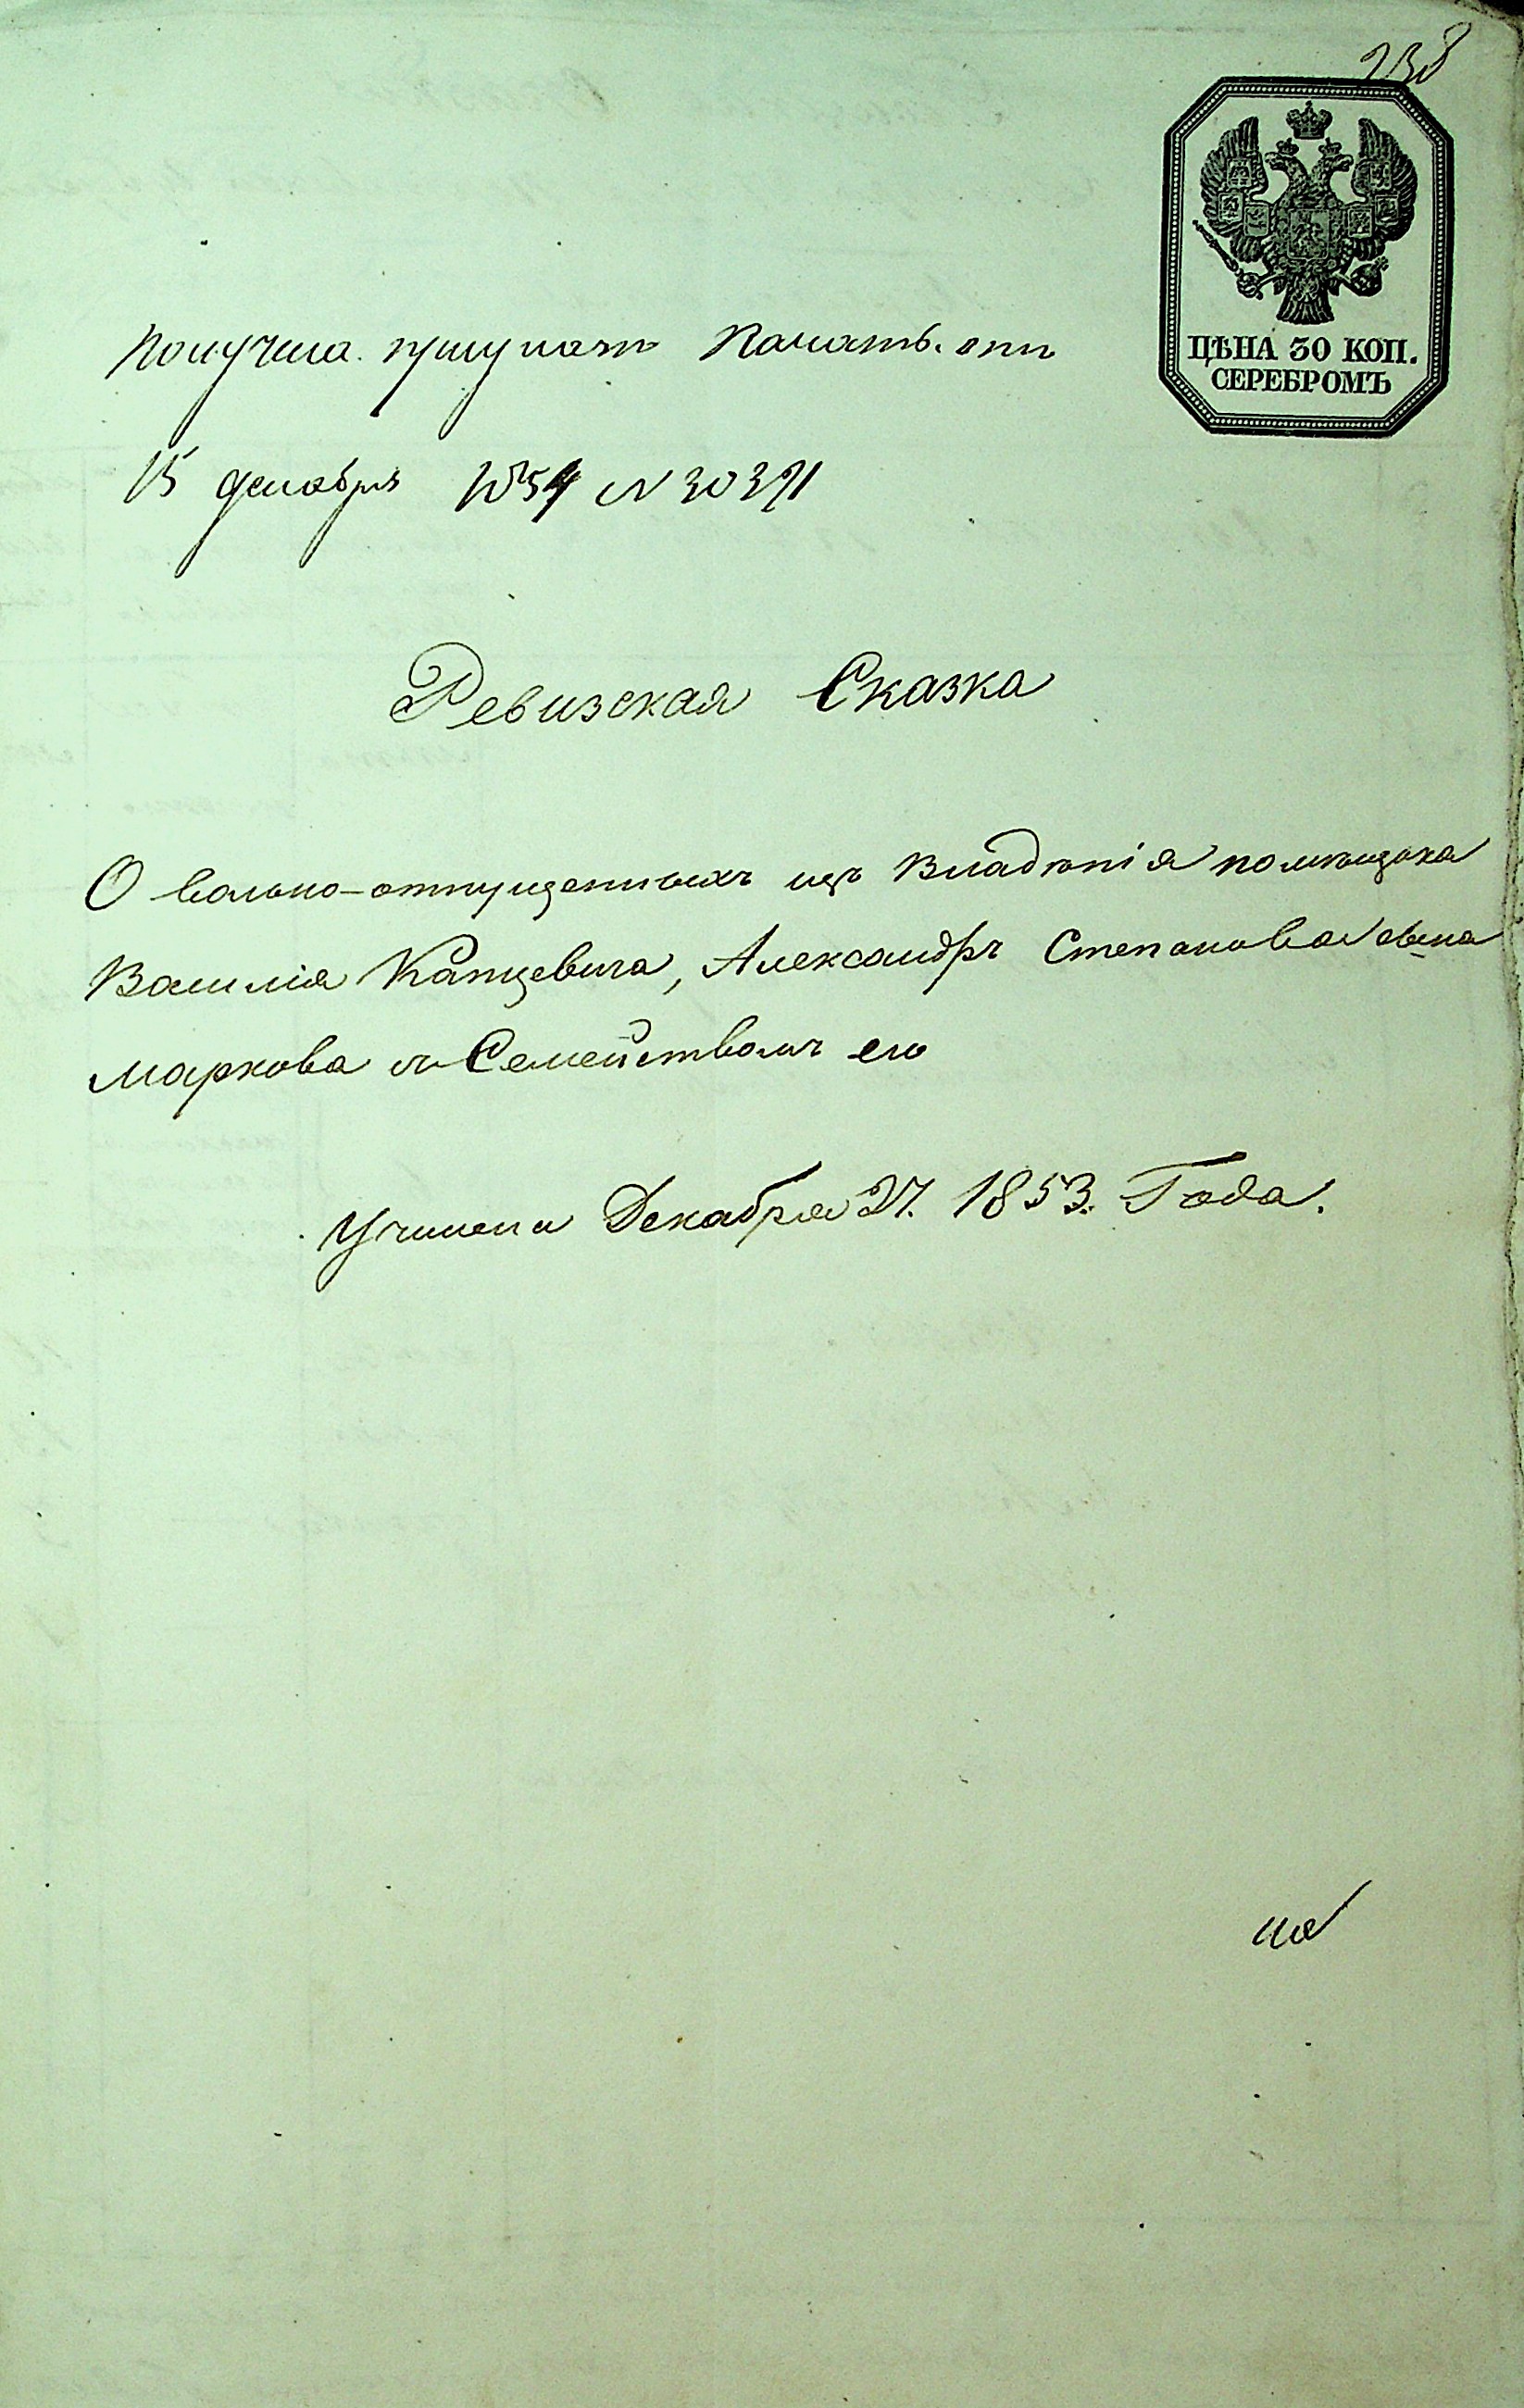 238
ЦѢНА 30 КОП.
СЕРЕБРОМЪ
Получена при указѣ Палаты отъ
15 декабря 1854 N 30371
Ревизская Сказка
О вольно-отпущенныхъ изъ Владѣнія помѣщика
Василія Капцевича, Александрѣ Степанова сына
Маркова съ Семействомъ его
Учинена Декабря 27. 1853. Года.